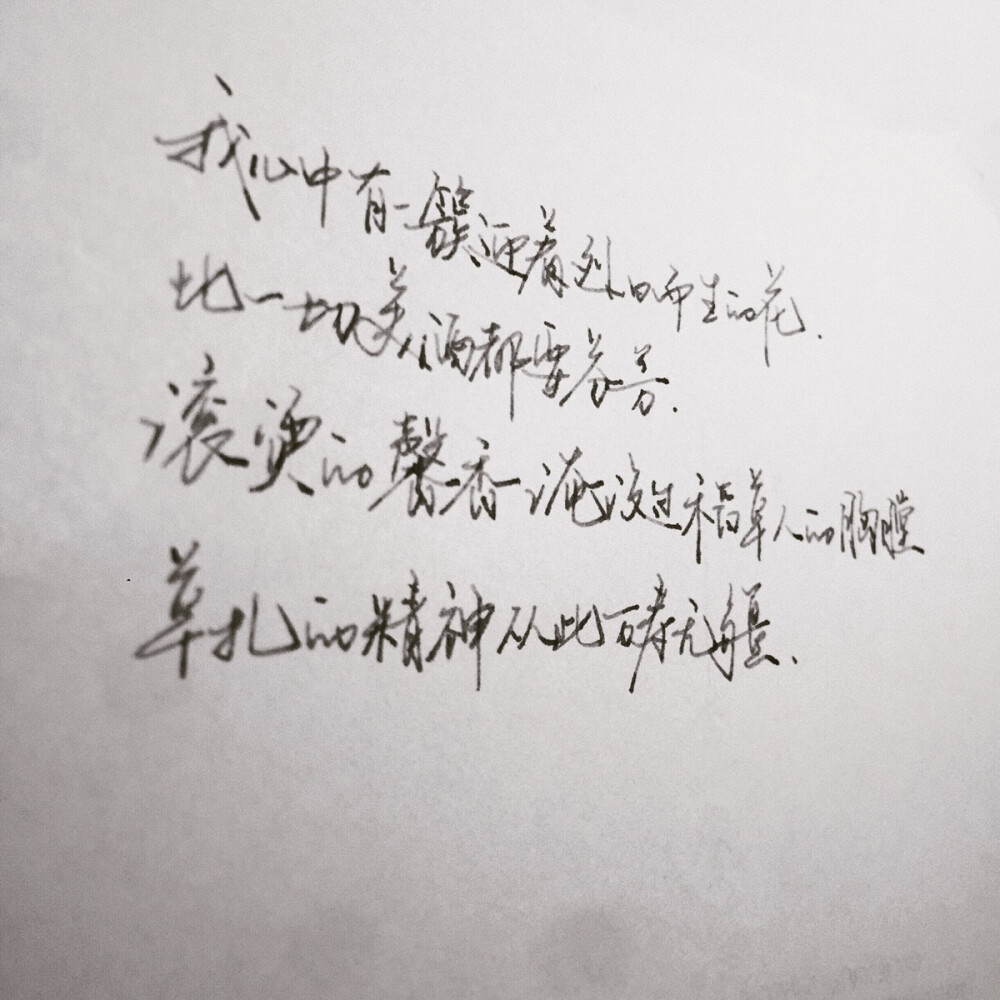 我心中有一簇迎着烈日而生的花.
比一切美酒都要芬芳.
滚烫的馨香淹没过稻草人的胸膛
草扎的精神从此万寿无疆.